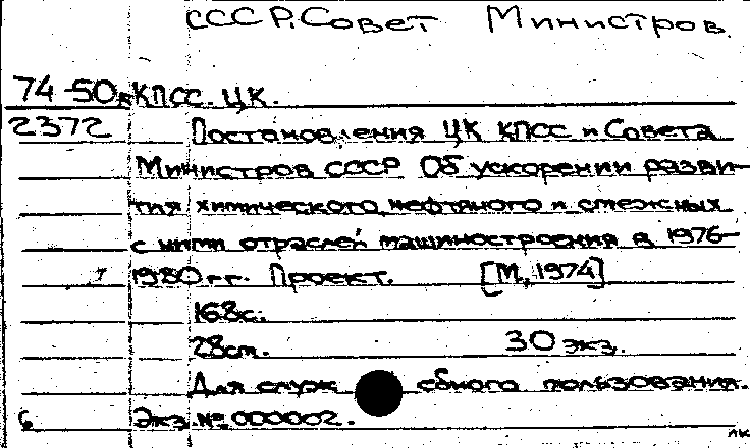 СССР. Совет Министров
74-50 КПСС. ЦК.
2372 Постановления ЦК КПСС и Совета
Министров СССР Об ускорении разви-
тия химического, нефтяного и смежных
с ними отраслей машиностроения в 1976-
1980 гг. Проект. [М., 1974]
168с.
28см. 30 экз.
Для служебного пользования.
6 Экз. № 000002.
пк